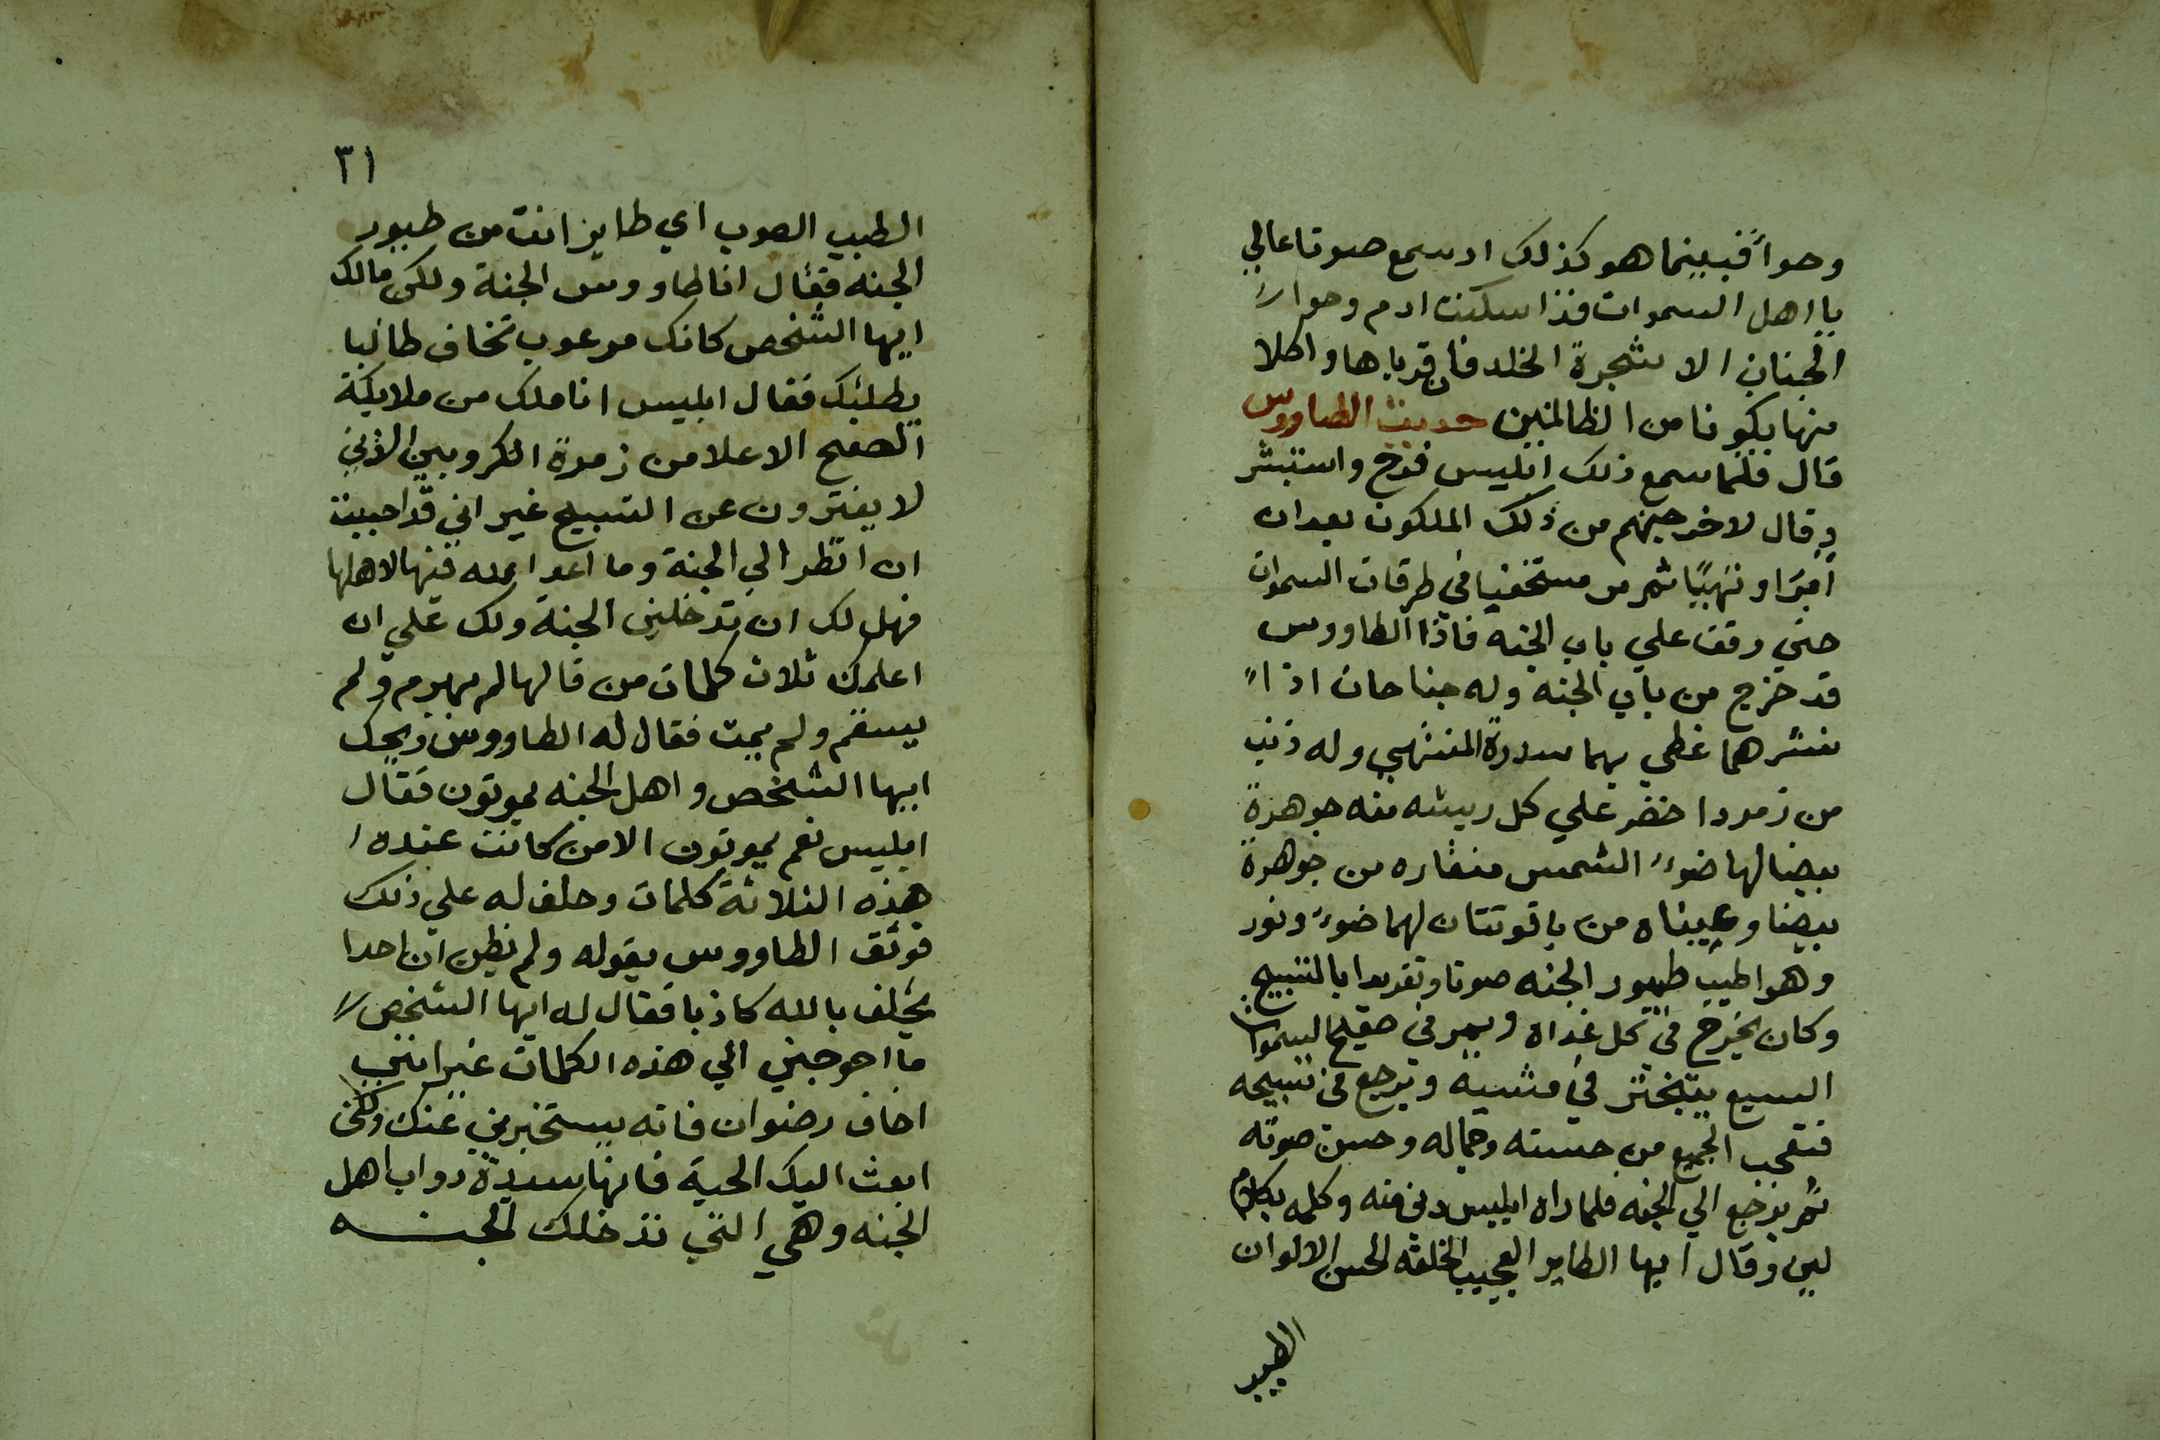 وحوأ فبينما هو كذلك اد سمع صوتا عالي
يا اهل السموات قد اسكنت ادم وحوا
الجنان الا شجرة الخلد فان قرباها واكلا
منها يكونا من الظالمين حديث الطاووس
قال فلما سمع ذلك ابليس فرح واستبشر
وقال لاخرجنهم من ذلك الملكوت بعد ان
ثم مر مستخفيا في طرقات السموات
حتي وقف علي باب الجنه فاذا الطاووس
قد خرج من باب الجنه وله جناحان اذا
نشرهما غطي بهما سدرة المنتهي وله ذنب
من زمرد اخضر علي كل ريشه منه جوهرة
بيضا لها ضوء الشمس منقاره من جوهرة
بيضا وعيناه من ياقوتتان لهما ضوء ونور
وهو اطيب طيور الجنه صوتا وتغريدا بالتسبيح
وكان يخرج في كل غداه ويمر في صفيح السموات
السبع يتبختر في مشيه ويرجع في تسبيحه
فتعجب الجميع من حسنه وجماله وحسن صوته
ثم يرجع الي الجنه فلما راه ابليس دنى منه وكلمه بكلام
لين وقال ايها الطاير العجيب الخلقه الحسن الالوان
الطيب
٣١
الطيب الصوت اي طاير انت من طيور
الجنه فقال انا طاووس الجنة ولكن مالك
ايها الشخص كانك مرعوب تخاف طالبا
يطلبك فقال ابليس انا ملك من ملايكة
الصفح الاعلا من زمرة الكروبين الذين
لا يفترون عن التسبيح غير اني قد احببت
ان انظر الي الجنة وما اعد الله فيها لاهلها
فهل لك ان تدخلني الجنة ولك علي ان
اعلمك ثلاث كلمات من قالها لم يهرم ولم
يسقم ولم يمت فقال له الطاووس ويحك
ايها الشخص واهل الجنه يموتون فقال
ابليس نعم يموتون الا من كانت عنده
هذه الثلاثة كلمات وحلف له علي ذلك
فوثق الطاووس بقوله ولم يظن ان احدا
يحلف بالله كاذبا فقال له ايها الشخص
ما احوجني الي هذه الكلمات غير انني
اخاف رضوان فانه يستخبرني عنك ولكن
ابعث اليك الحية فانها سيدة دواب اهل
الجنه وهي التي تدخلك الجنه